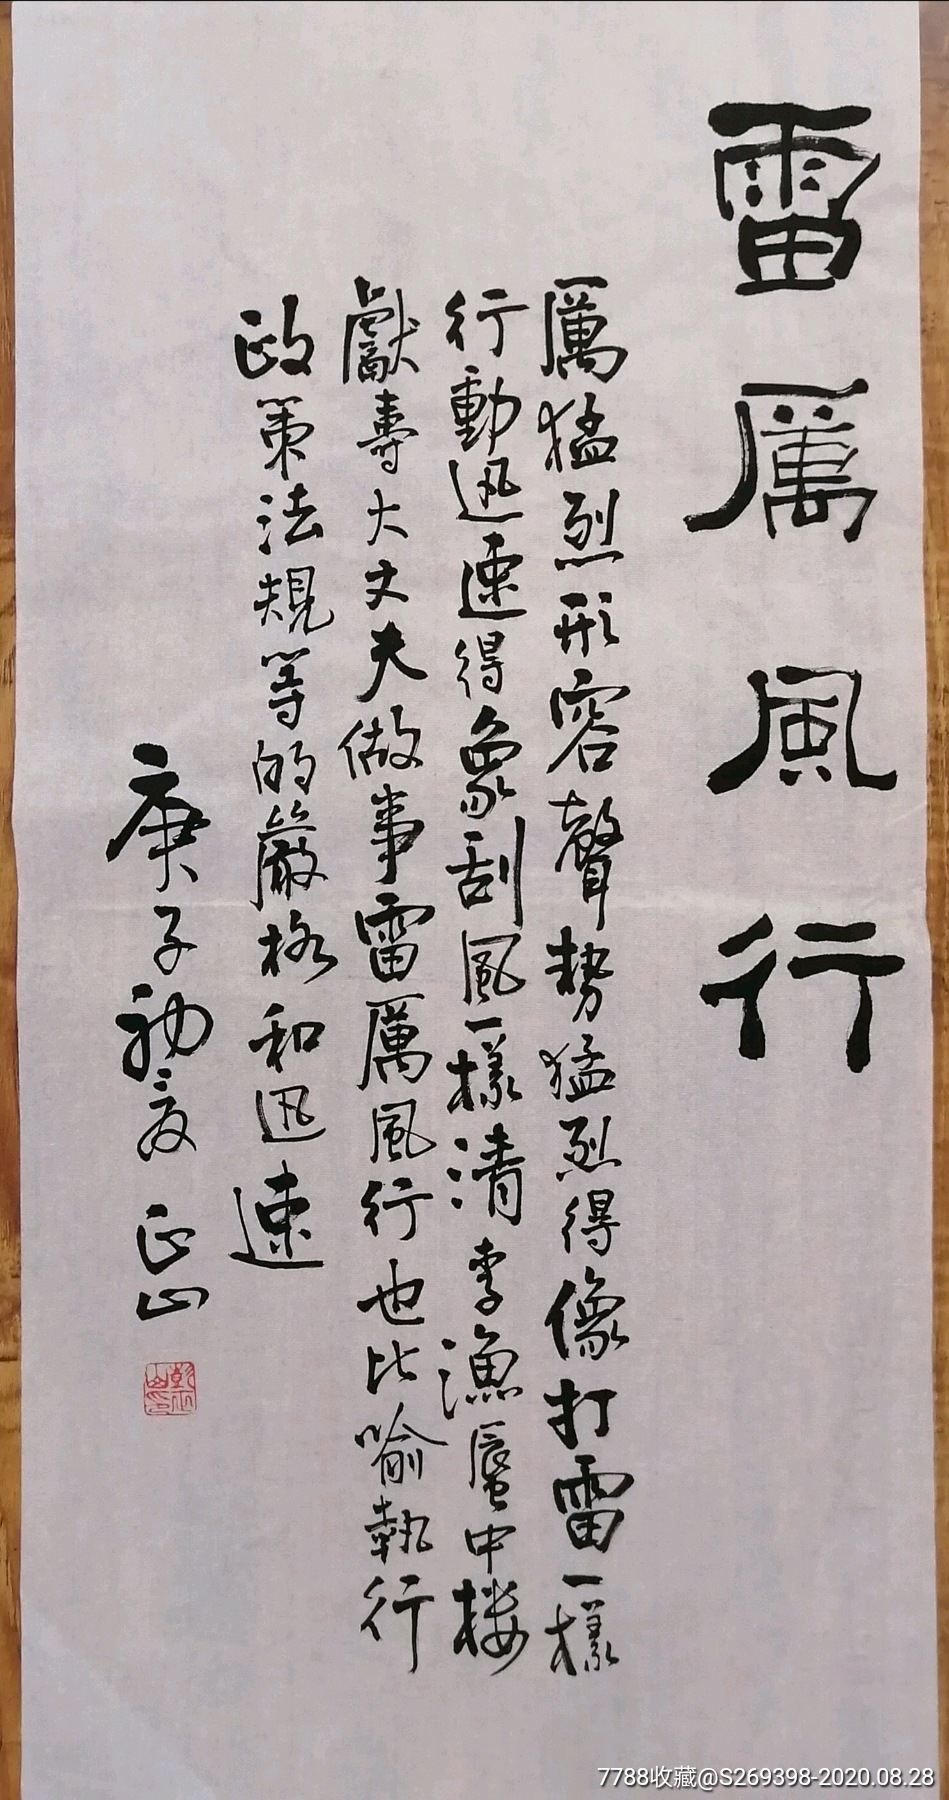 雷厲風行
厲猛烈形容聲勢猛烈得像打雷一樣
行動迅速得象刮風一樣清李漁蜃中楼
獻壽大丈夫做事雷厲風行也比喻執行
政策法規等的嚴格和迅速
庚子初夏 正山
7788收藏@S269398-2020.08.28